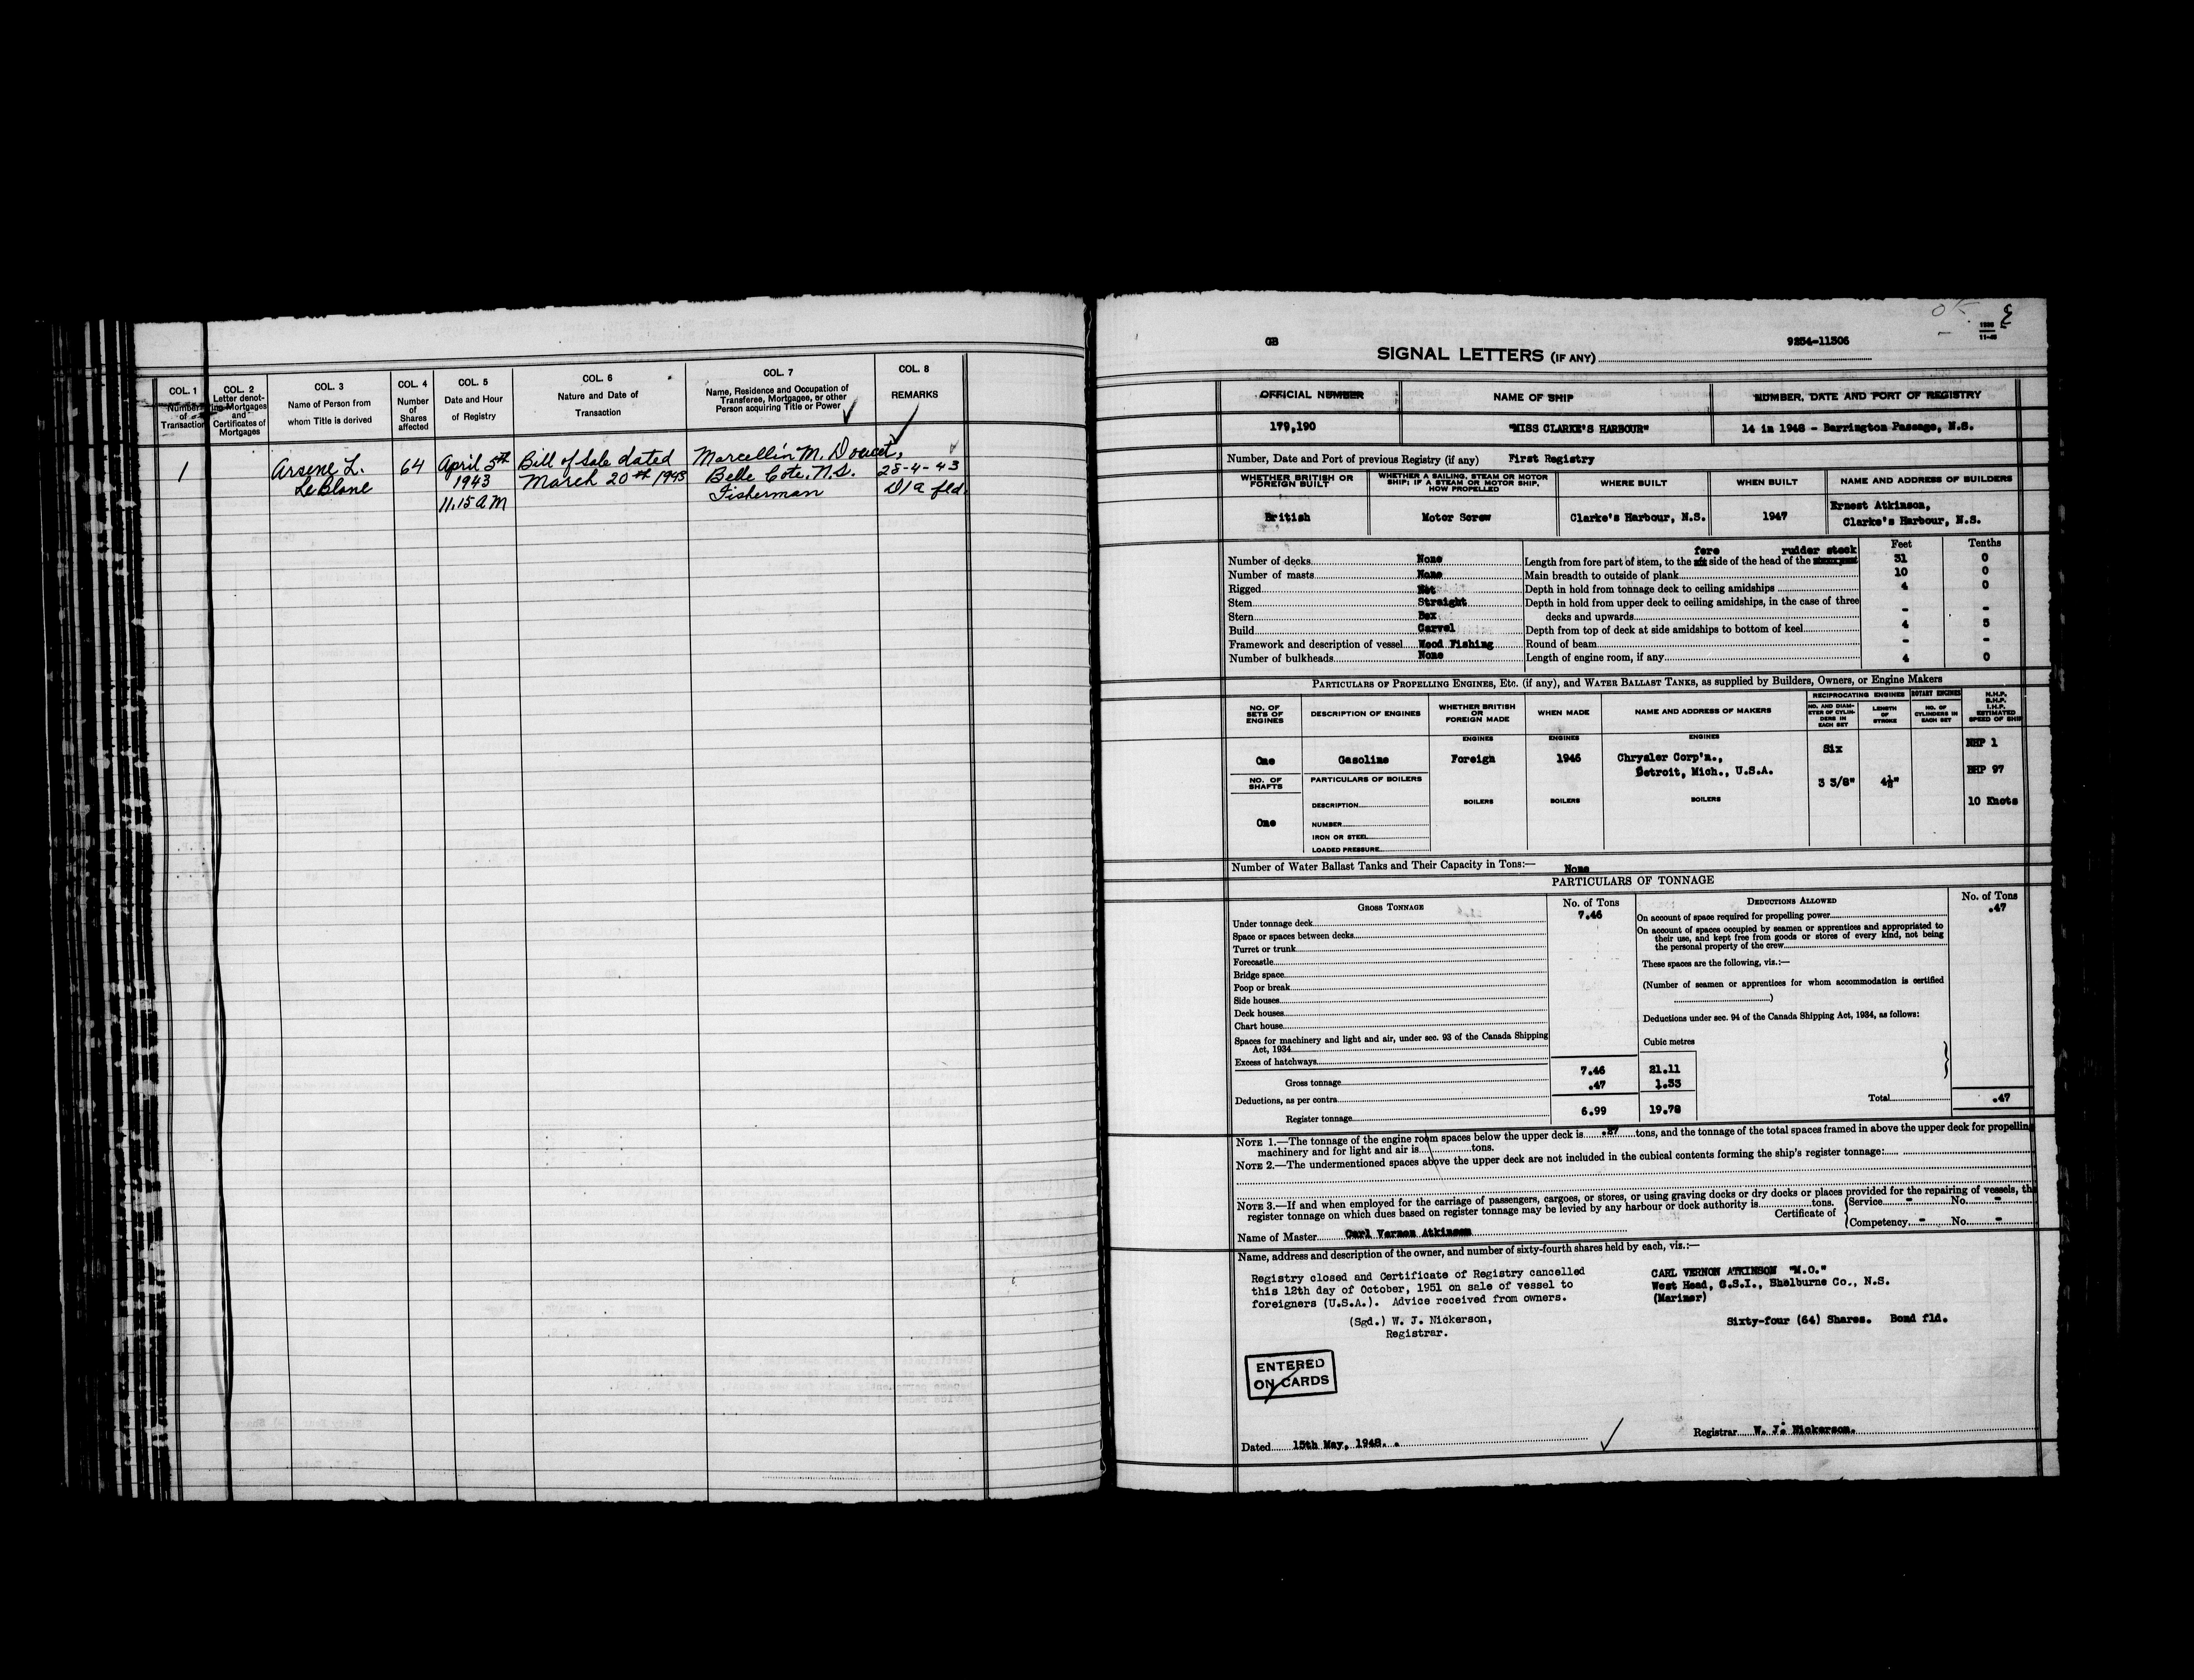 COL. 1
Number
of
Transaction
COL. 2
Letter denot-
ing Mortgages
and
Certificates of
Mortgages
COL. 3
Name of Person from
whom Title is derived
COL. 4
Number
of
Shares
affected
COL. 5
Date and Hour
of Registry
COL. 6
Nature and Date of
Transaction
COL. 7
Name, Residence and Occupation of
Transferee, Mortgagee, or other
Person acquiring Title or Power
COL. 8
REMARKS
1
Arsene L.
LeBlanc
64
April 5th
1943
11.15 A M
Bill of Sale dated
March 20th 1943
Marcellin M. Doucet,
Belle Cote, N.S.
Fisherman
28-4-43
D/a fld.
OK
GB
9254-11306
SIGNAL LETTERS (IF ANY)
OFFICIAL NUMBER
NAME OF SHIP
NUMBER, DATE AND PORT OF REGISTRY
179,190
"MISS CLARKE'S HARBOUR"
14 in 1948 - Barrington Passage, N.S.
Number, Date and Port of previous Registry (if any) First Registry
WHETHER BRITISH OR
FOREIGN BUILT
WHETHER A SAILING, STEAM OR MOTOR
SHIP; IF A STEAM OR MOTOR SHIP,
HOW PROPELLED
WHERE BUILT
WHEN BUILT
NAME AND ADDRESS OF BUILDERS
British
Motor Screw
Clarke's Harbour, N.S.
1947
Ernest Atkinson,
Clarke's Harbour, N.S.
Feet
Tenths
Number of decks None
Number of masts None
Rigged
Stem Straight
Stern Box
Build Carvel
Framework and description of vessel Wood Fishing
Number of bulkheads None
fore rudder stock
Length from fore part of stem, to the side of the head of the 31 0
Main breadth to outside of plank 10 0
Depth in hold from tonnage deck to ceiling amidships 4 0
Depth in hold from upper deck to ceiling amidships, in the case of three
decks and upwards - -
Depth from top of deck at side amidships to bottom of keel 4 5
Round of beam - -
Length of engine room, if any 4 0
PARTICULARS OF PROPELLING ENGINES, ETC. (if any), and WATER BALLAST TANKS, as supplied by Builders, Owners, or Engine Makers
NO. OF
SETS OF
ENGINES
DESCRIPTION OF ENGINES
WHETHER BRITISH
OR
FOREIGN MADE
WHEN MADE
NAME AND ADDRESS OF MAKERS
RECIPROCATING ENGINES
NO. AND DIAM-
ETER OF CYLIN-
DERS IN
EACH SET
LENGTH
OF
STROKE
ROTARY ENGINES
NO. OF
CYLINDERS IN
EACH SET
N.H.P.
B.H.P.
I.H.P.
ESTIMATED
SPEED OF SHIP
ENGINES
ENGINES
ENGINES
One
Gasoline
Foreign
1946
Chrysler Corp'n.,
Detroit, Mich., U.S.A.
Six
3 3/8"
4½"
NHP 1
BHP 97
10 Knots
NO. OF
SHAFTS
PARTICULARS OF BOILERS
BOILERS
BOILERS
BOILERS
One
DESCRIPTION
NUMBER
IRON OR STEEL
LOADED PRESSURE
Number of Water Ballast Tanks and Their Capacity in Tons:— None
PARTICULARS OF TONNAGE
GROSS TONNAGE
No. of Tons
Under tonnage deck 7.46
Space or spaces between decks
Turret or trunk
Forecastle
Bridge space
Poop or break
Side houses
Deck houses
Chart house
Spaces for machinery and light and air, under sec. 93 of the Canada Shipping
Act, 1934
Excess of hatchways
Gross tonnage 7.46 21.11
Deductions, as per contra .47 1.33
Register tonnage 6.99 19.78
DEDUCTIONS ALLOWED
No. of Tons
On account of space required for propelling power .47
On account of spaces occupied by seamen or apprentices and appropriated to
their use, and kept free from goods or stores of every kind, not being
the personal property of the crew
These spaces are the following, viz.:—
(Number of seamen or apprentices for whom accommodation is certified
)
Deductions under sec. 94 of the Canada Shipping Act, 1934, as follows:
Cubic metres
Total .47
NOTE 1.—The tonnage of the engine room spaces below the upper deck is tons, and the tonnage of the total spaces framed in above the upper deck for propelling
machinery and for light and air is tons.
NOTE 2.—The undermentioned spaces above the upper deck are not included in the cubical contents forming the ship's register tonnage:
NOTE 3.—If and when employed for the carriage of passengers, cargoes, or stores, or using graving docks or dry docks or places provided for the repairing of vessels, the
register tonnage on which dues based on register tonnage may be levied by any harbour or dock authority is tons.
Certificate of
Service - No. -
Competency - No. -
Name of Master Carl Vernon Atkinson
Name, address and description of the owner, and number of sixty-fourth shares held by each, viz.:—
Registry closed and Certificate of Registry cancelled
this 12th day of October, 1951 on sale of vessel to
foreigners (U.S.A.). Advice received from owners.
(Sgd.) W. J. Nickerson,
Registrar.
CARL VERNON ATKINSON "M.O."
West Head, C.S.I., Shelburne Co., N.S.
(Mariner)
Sixty-four (64) Shares. Bond fld.
ENTERED
ON CARDS
Dated 15th May, 1948.
Registrar W. J. Nickerson.